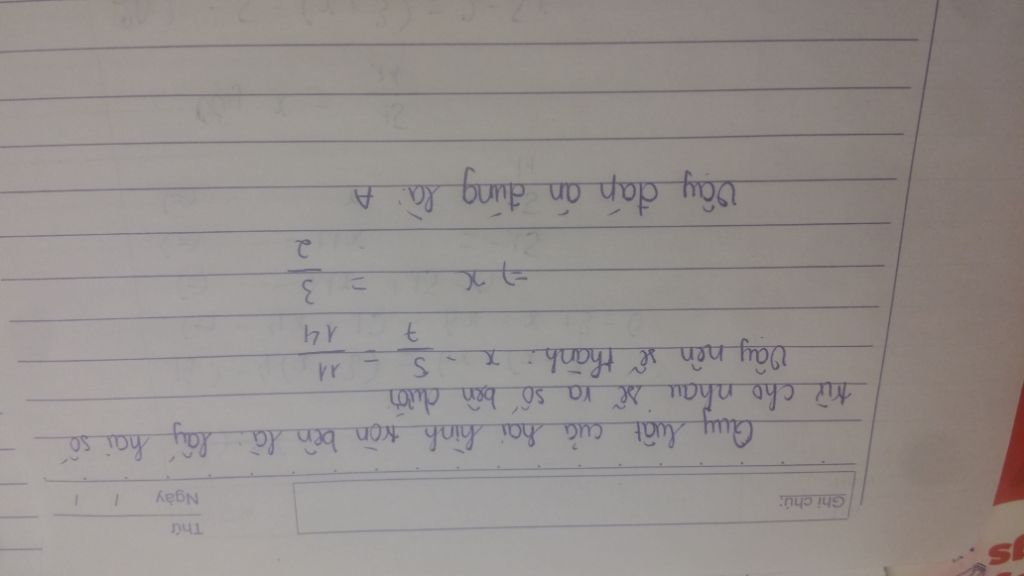 Ghi chú:
Thứ
Ngày / /
Quy luật của hai hình tròn bên là: lấy hai số
trừ cho nhau sẽ ra số bên dưới
Vậy nên sẽ thành: x - 5/7 = 11/14
=> x = 3/2
Vậy đáp án đúng là: A